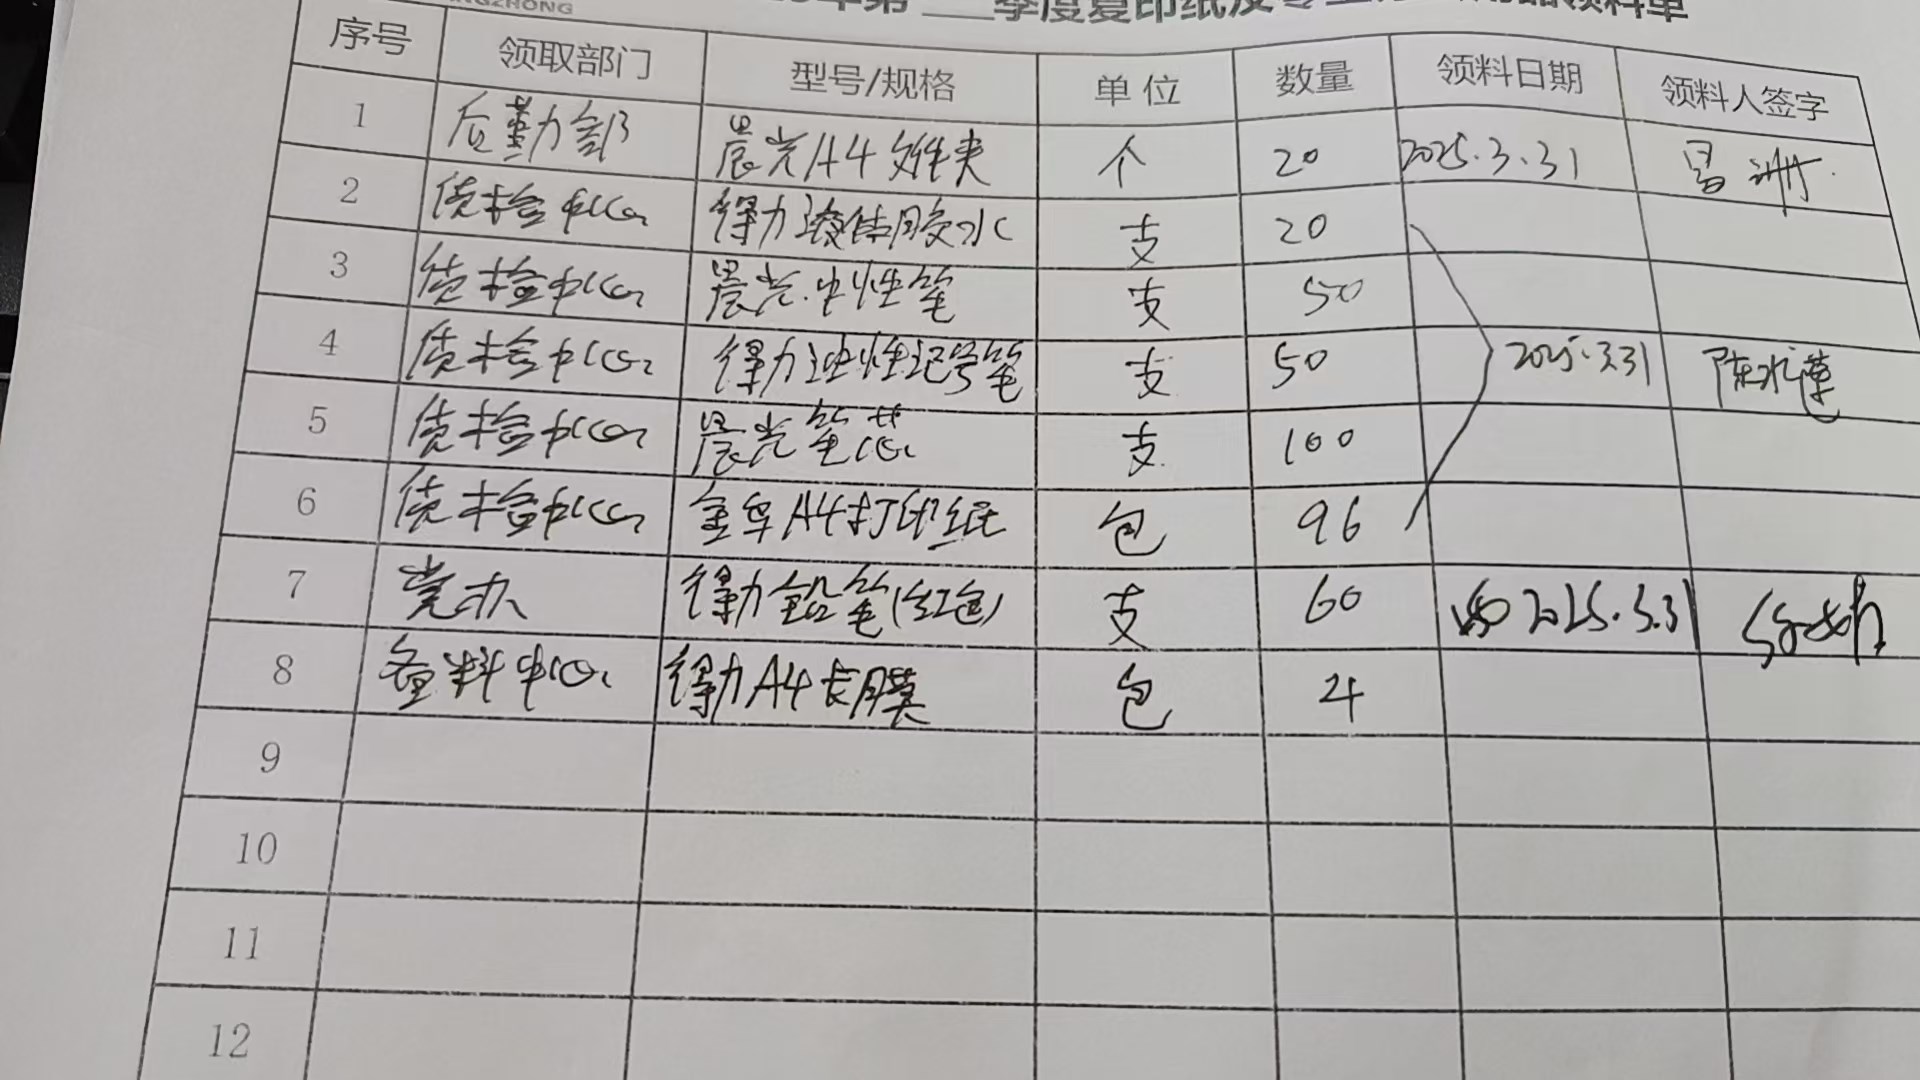 季度复印纸及
领料单
序号 领取部门 型号/规格 单位 数量 领料日期 领料人签字
1 后勤部 晨光A4文件夹 个 20 2025.3.31
2 质检中心 得力液体胶水 支 20
3 质检中心 晨光中性笔 支 50
4 质检中心 得力油性记号笔 支 50 2025.3.31 陈水莲
5 质检中心 晨光笔芯 支 100
6 质检中心 金年A4打印纸 包 96
7 党办 得力铅笔(红色) 支 60 2025.3.31
8 备料中心 得力A4卡膜 包 4
9
10
11
12